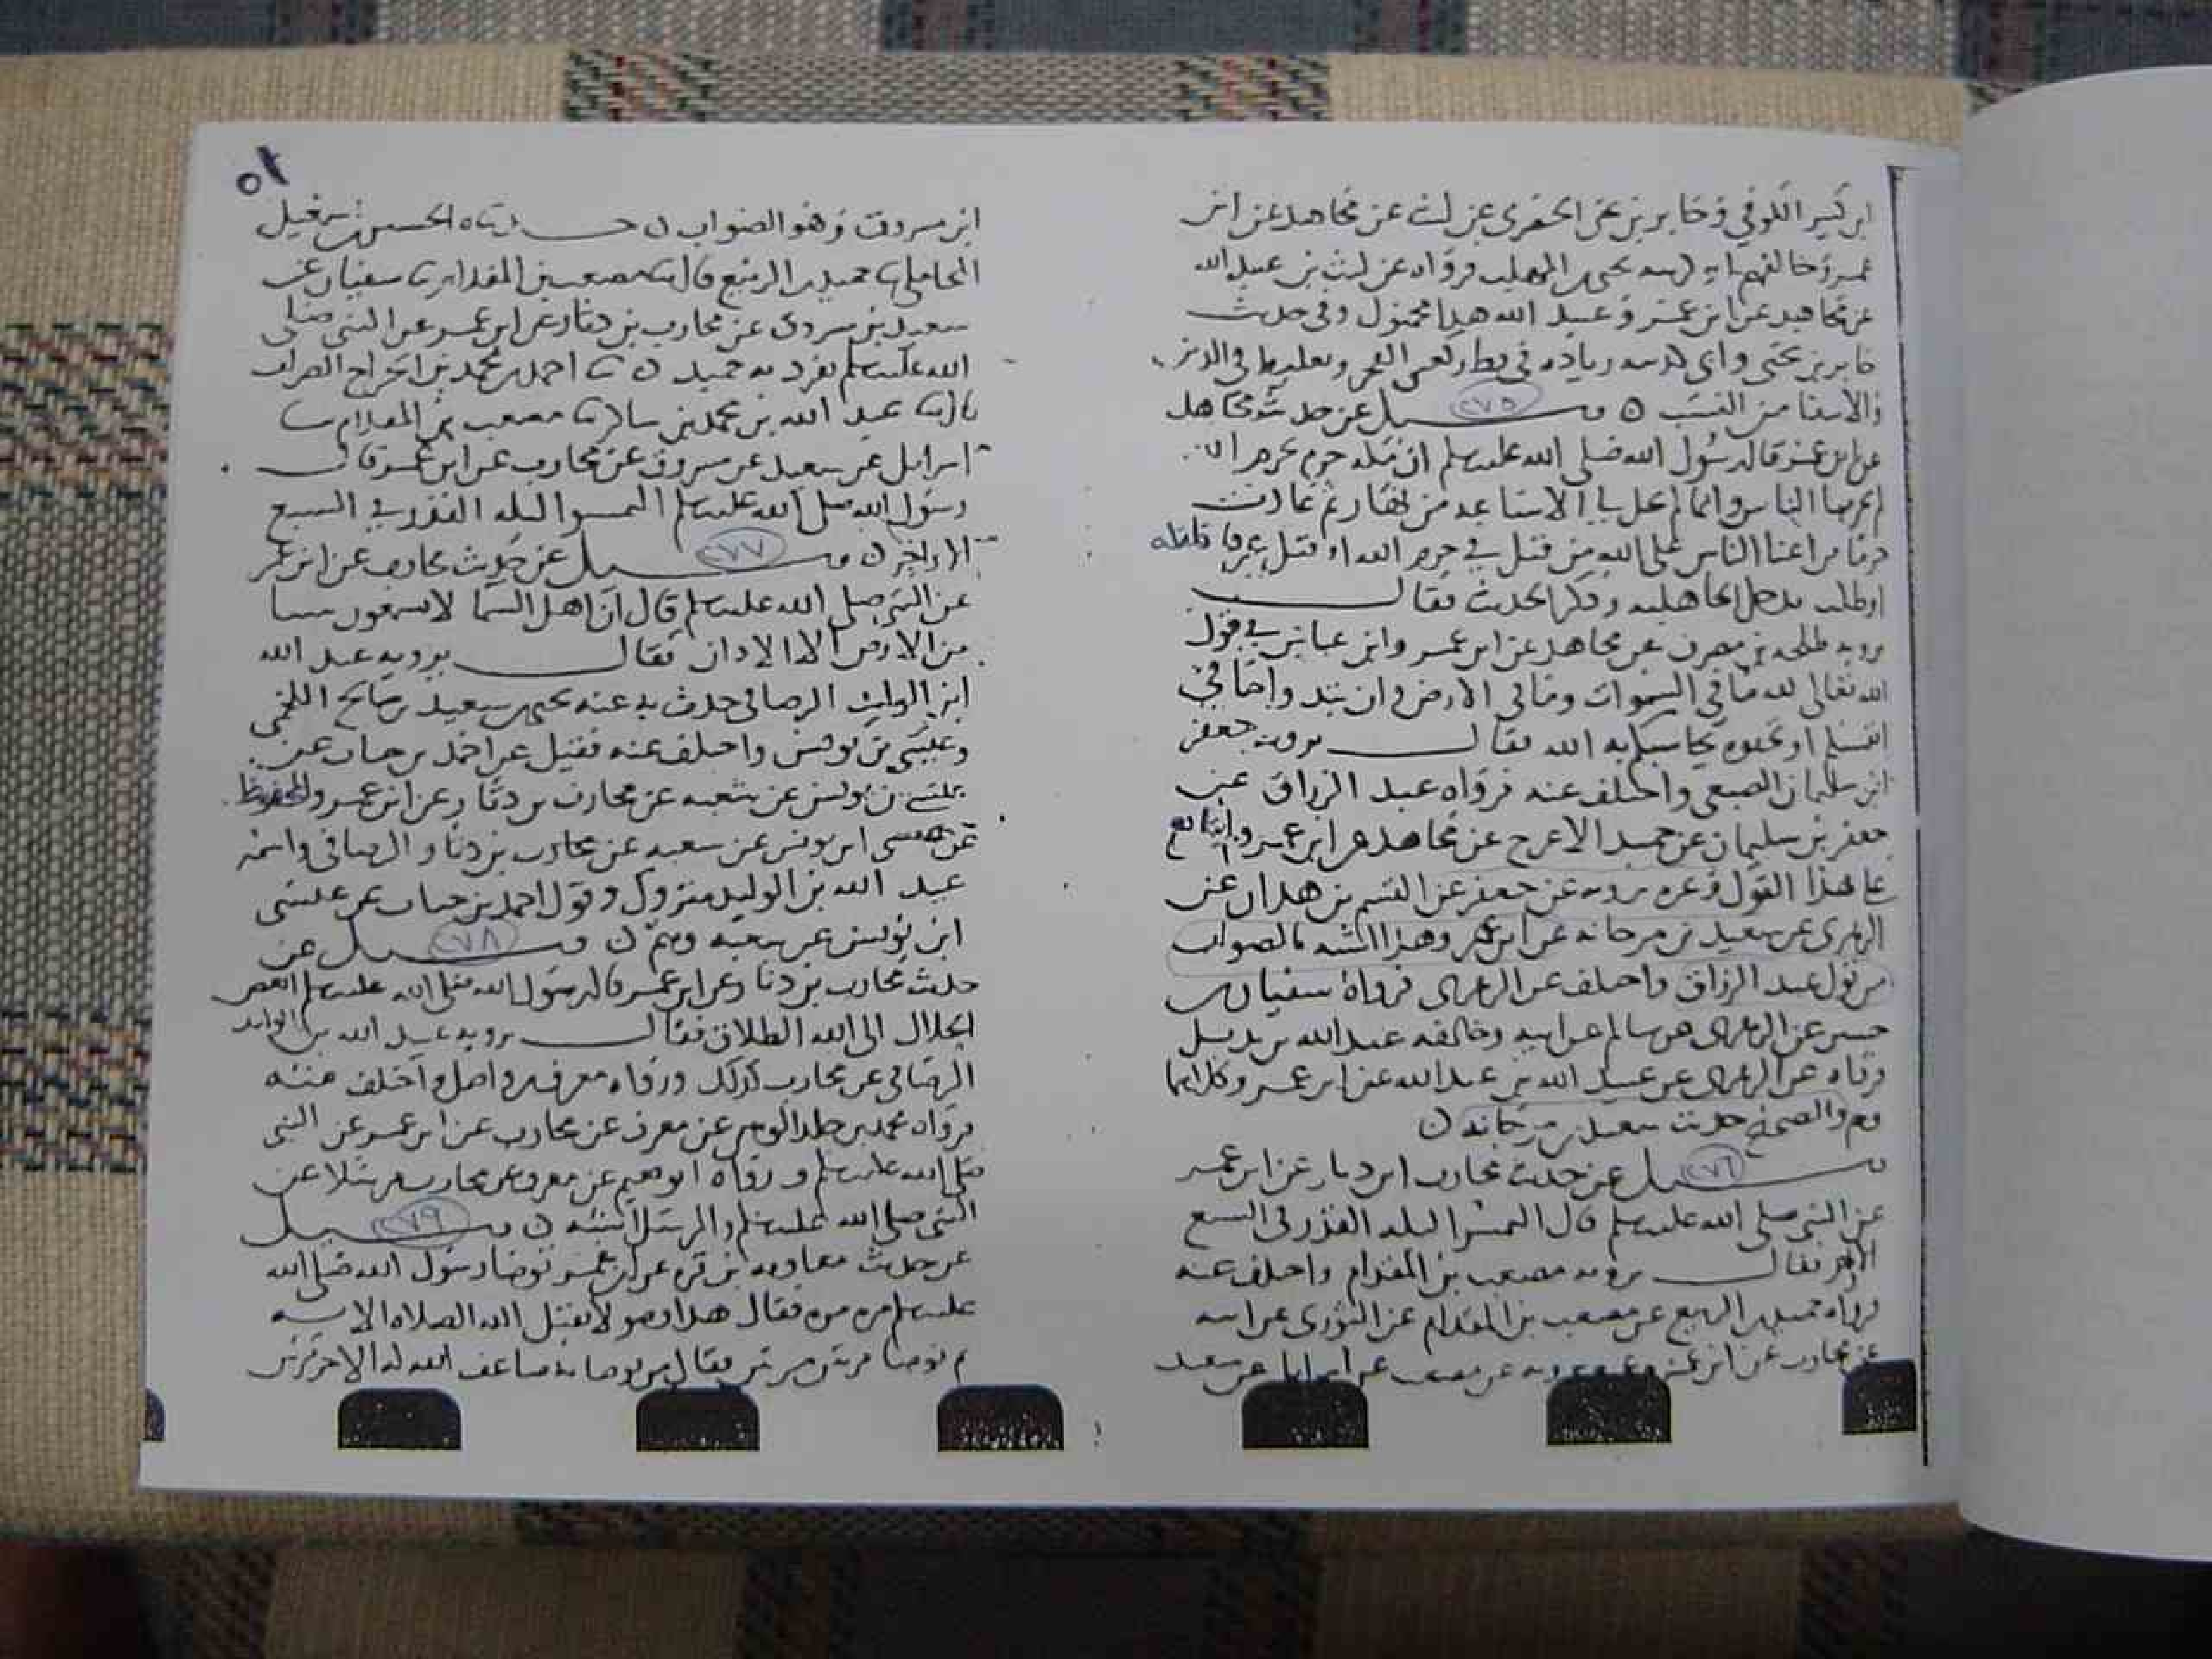 ابن كثير الكوفي وجابر بن يحيى الحضرمي عن ليث عن مجاهد عن ابن
عمر وخالفهم يحيى بن المهلب فرواه عن ليث عن عبيد الله
عن مجاهد عن ابن عمر وعبيد الله هذا مجهول وفي حديث
جابر بن يحيى وابي زيادة في ركعتي الفجر
من النسب ٥ وسئل ٢٧٥ عن حديث مجاهد
عن ابن عمر قال رسول الله صلى الله عليه وسلم ان مكة حرم
الناس وانما لم تحل لي الا ساعة من نهار ثم عادت
الناس على الله من قتل في حرم الله او قتل غير قاتله
او طلب بذحل الجاهلية وذكر الحديث فقال
يرويه طلحة بن مصرف عن مجاهد عن ابن عمر وابن عباس في قول
الله تعالى لله ما في السموات وما في الارض وان تبدوا ما في
انفسكم او تخفوه يحاسبكم به الله فقال يرويه جعفر
ابن سليمان الضبعي واختلف عنه فرواه عبد الرزاق عن
جعفر بن سليمان عن حميد الاعرج عن مجاهد عن ابن عمر
على هذا القول وغيره يرويه عن جعفر عن القسم بن هزان عن
الزهري عن سعيد بن مرجانة عن ابن عمر وهذا اشبه بالصواب
من قول عبد الرزاق واختلف عن الزهري فرواه سفيان بن
حسين عن الزهري عن سالم عن ابيه وخالفه عبد الله بن بديل
فرواه عن الزهري عن عبيد الله بن عبد الله عن ابن عمر وكلاهما
وهم والصحيح حديث سعيد بن مرجانة ن
وسئل ٢٧٦ عن حديث محارب ابن دثار عن ابن عمر
عن النبي صلى الله عليه وسلم قال التمسوا ليلة القدر في السبع
الاواخر فقال يرويه مصعب بن المقدام واختلف عنه
فرواه حميد بن الربيع عن مصعب بن المقدام عن الثوري عن ابيه
عن محارب عن ابن عمر وغيره يرويه عن مصعب عن اسرائيل عن سعيد
٥٢
ابن مسروق وهو الصواب ن حدثناه الحسين بن اسمعيل
المحاملي ثنا حميد بن الربيع قال ثنا مصعب بن المقدام ثنا سفيان عن
سعيد بن مسروق عن محارب بن دثار عن ابن عمر عن النبي صلى
الله عليه وسلم تفرد به حميد ن ثنا احمد بن محمد بن الجراح الضراب
قال ثنا عبد الله بن محمد بن سالم ثنا مصعب بن المقدام ثنا
اسرائيل عن سعيد عن مسروق عن محارب عن ابن عمر قال
رسول الله صلى الله عليه وسلم التمسوا ليلة القدر في السبع
الاواخر ن وسئل ٢٧٧ عن حديث محارب عن ابن عمر
عن النبي صلى الله عليه وسلم قال ان اهل السما لا يسمعون شيئا
من الارض الا الاذان فقال يرويه عبيد الله
ابن الوليد الوصافي حدث به عنه يحيى بن سعيد بن صالح اللخمي
وعيسى بن يونس واختلف عنه فقيل عن احمد بن جناب عن
عيسى بن يونس عن شعبة عن محارب بن دثار عن ابن عمر والمحفوظ
عن عيسى ابن يونس عن شعبة عن محارب بن دثار والوصافي واسمه
عبيد الله بن الوليد متروك وقول احمد بن جناب عن عيسى
ابن يونس عن شعبة وهم ن وسئل ٢٧٨ عن
حديث محارب بن دثار عن ابن عمر قال رسول الله صلى الله عليه وسلم ابغض
الحلال الى الله الطلاق فقال يرويه عبيد الله بن الوليد
الوصافي عن محارب كذلك ورواه معرف بن واصل واختلف عنه
فرواه محمد بن خالد الوهبي عن معرف عن محارب عن ابن عمر عن النبي
صلى الله عليه وسلم ورواه ابو نعيم عن معرف عن محارب مرسلا عن
النبي صلى الله عليه وسلم والمرسل اشبه ن وسئل ٢٧٩
عن حديث معاوية بن قرة عن ابن عمر توضا رسول الله صلى الله
عليه وسلم مرة مرة فقال هذا وضو لا يقبل الله الصلاة الا به
ثم توضا مرتين مرتين فقال من توضا به ضاعف الله له الاجر مرتين